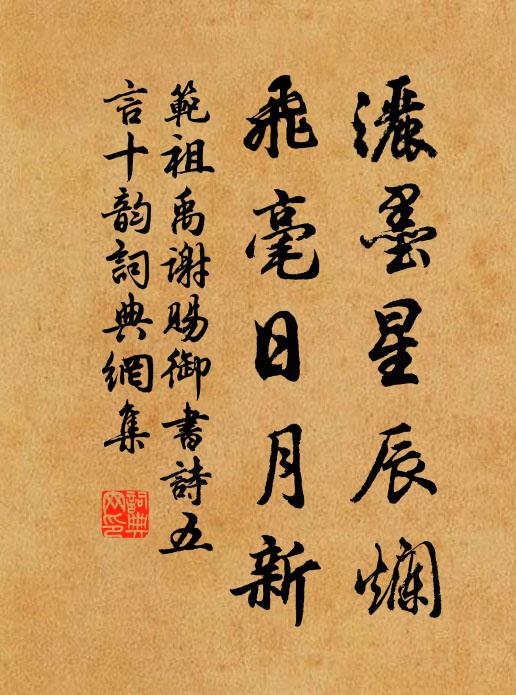 灑墨星辰爛
飛毫日月新
範祖禹謝賜御書詩五
言十韵詞典網集
詞典網印